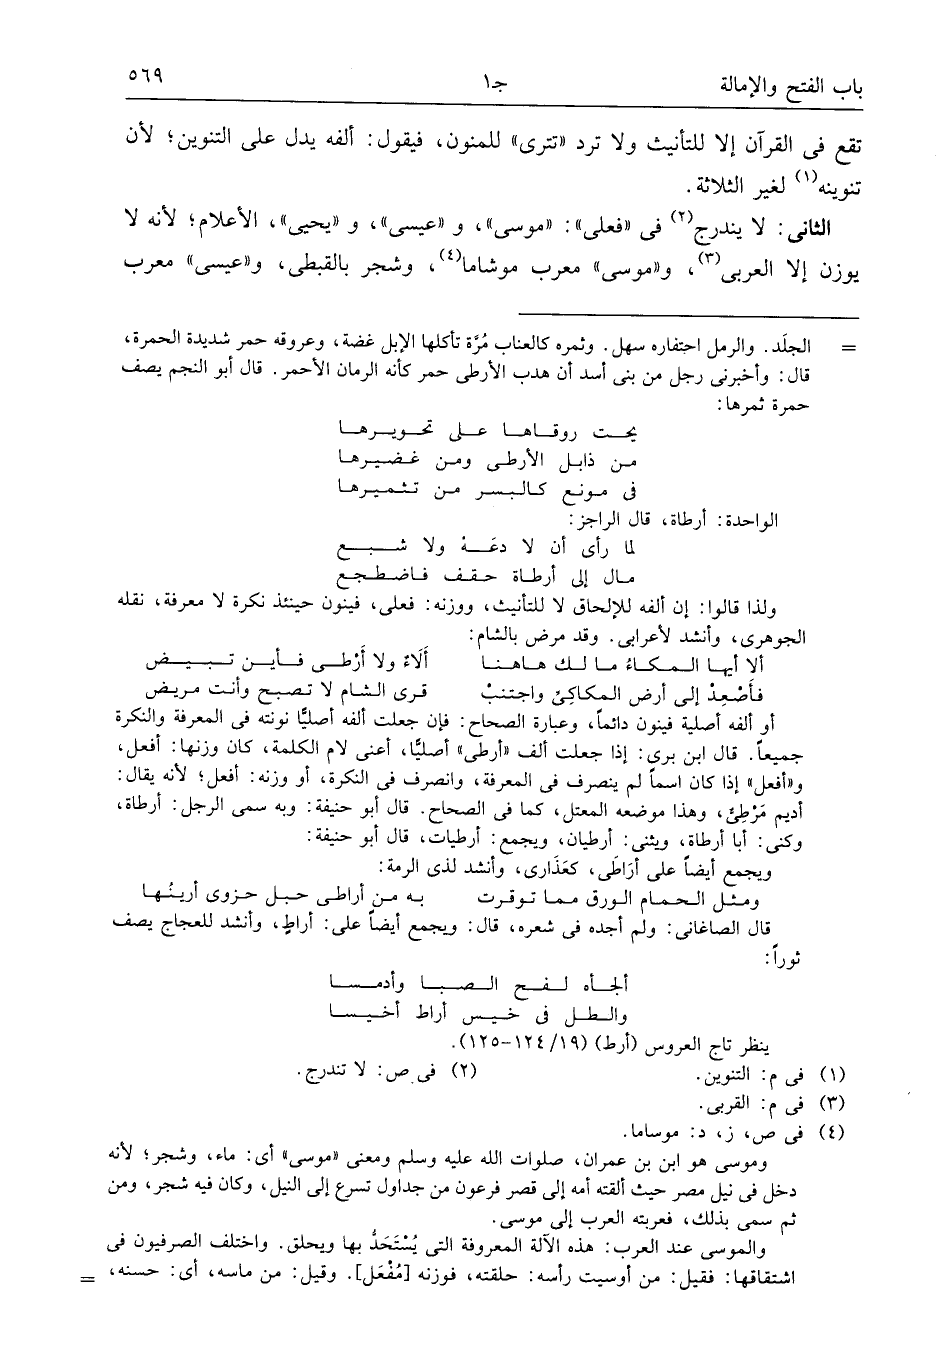 باب الفتح والإمالة جـ١ ٥٦٩
تقع فى القرآن إلا للتأنيث ولا ترد «تترى» للمنون، فيقول: ألفه يدل على التنوين؛ لأن
تنوينه(١) لغير الثلاثة.
الثانى: لا يندرج(٢) فى «فعلى»: «موسى»، و «عيسى»، و «يحيى»، الأعلام؛ لأنه لا
يوزن إلا العربى(٣)، و«موسى» معرب موشاما(٤)، وشجر بالقبطى، و«عيسى» معرب
= الجلَد. والرمل احتفاره سهل. وثمره كالعناب مُرَّة تأكلها الإبل غضة، وعروقه حمر شديدة الحمرة،
قال: وأخبرنى رجل من بنى أسد أن هدب الأرطى حمر كأنه الرمان الأحمر. قال أبو النجم يصف
حمرة ثمرها:
يحت روقاها على تحويرها
من ذابل الأرطى ومن غضيرها
فى مونع كالبسر من تثميرها
الواحدة: أرطاة، قال الراجز:
لما رأى أن لا دعَهْ ولا شبع
مال إلى أرطاة حقف فاضطجع
ولذا قالوا: إن ألفه للإلحاق لا للتأنيث، ووزنه: فعلى، فينون حينئذ نكرة لا معرفة، نقله
الجوهرى، وأنشد لأعرابى. وقد مرض بالشام:
ألا أيها المكاءُ ما لك هاهنا ألَاءٌ ولا أَرْطى فأين تبيض
فأَصْعِدْ إلى أرض المكاكِئِ واجتنبْ قرى الشام لا تصبح وأنت مريض
أو ألفه أصلية فينون دائماً، وعبارة الصحاح: فإن جعلت ألفه أصليًا نونته فى المعرفة والنكرة
جميعاً. قال ابن برى: إذا جعلت ألف «أرطى» أصليًّا، أعنى لام الكلمة، كان وزنها: أفعل،
و«أفعل» إذا كان اسماً لم ينصرف فى المعرفة، وانصرف فى النكرة، أو وزنه: أفعل؛ لأنه يقال:
أديم مَرْطِىّ، وهذا موضعه المعتل، كما فى الصحاح. قال أبو حنيفة: وبه سمى الرجل: أرطاة،
وكنى: أبا أرطاة، ويثنى: أرطيان، ويجمع: أرطيات، قال أبو حنيفة:
ويجمع أيضاً على أرَاطَى، كعَذَارى، وأنشد لذى الرمة:
ومثل الحمام الورق مما توقرت به من أراطى حبل حزوى أرينُها
قال الصاغانى: ولم أجده فى شعره، قال: ويجمع أيضاً على: أراطٍ، وأنشد للعجاج يصف
ثوراً:
ألجأه لفح الصبا وأدمسا
والطل فى خيس أراط أخيسا
ينظر تاج العروس (أرط) (١٩/ ١٢٤-١٢٥).
(١) فى م: التنوين. (٢) فى ص: لا تندرج.
(٣) فى م: القربى.
(٤) فى ص، ز، د: موساما.
وموسى هو ابن بن عمران، صلوات الله عليه وسلم ومعنى «موسى» أى: ماء، وشجر؛ لأنه
دخل فى نيل مصر حيث ألقته أمه إلى قصر فرعون من جداول تسرع إلى النيل، وكان فيه شجر، ومن
ثم سمى بذلك، فعربته العرب إلى موسى.
والموسى عند العرب: هذه الآلة المعروفة التى يُسْتَحَدُّ بها ويحلق. واختلف الصرفيون فى
اشتقاقها: فقيل: من أوسيت رأسه: حلقته، فوزنه [مُفْعَل]. وقيل: من ماسه، أى: حسنه، =